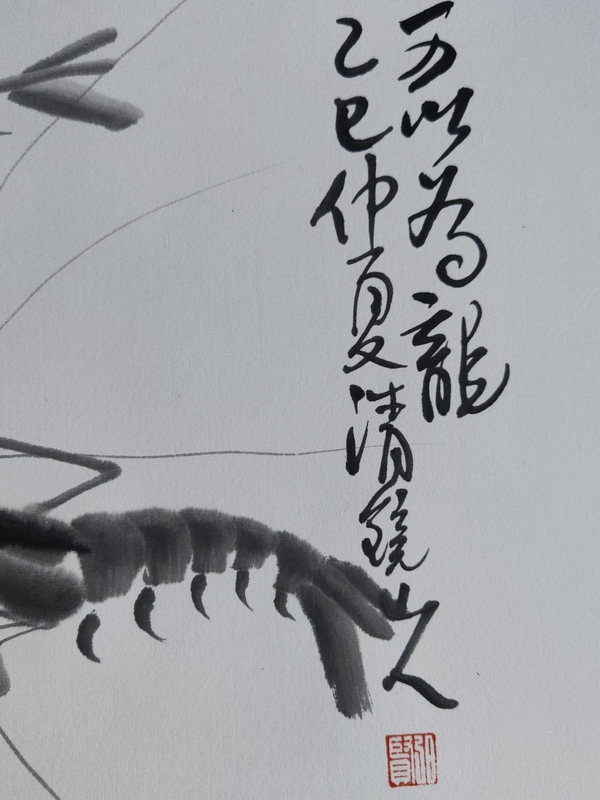 可以為龍
乙巳仲夏清鏡山人